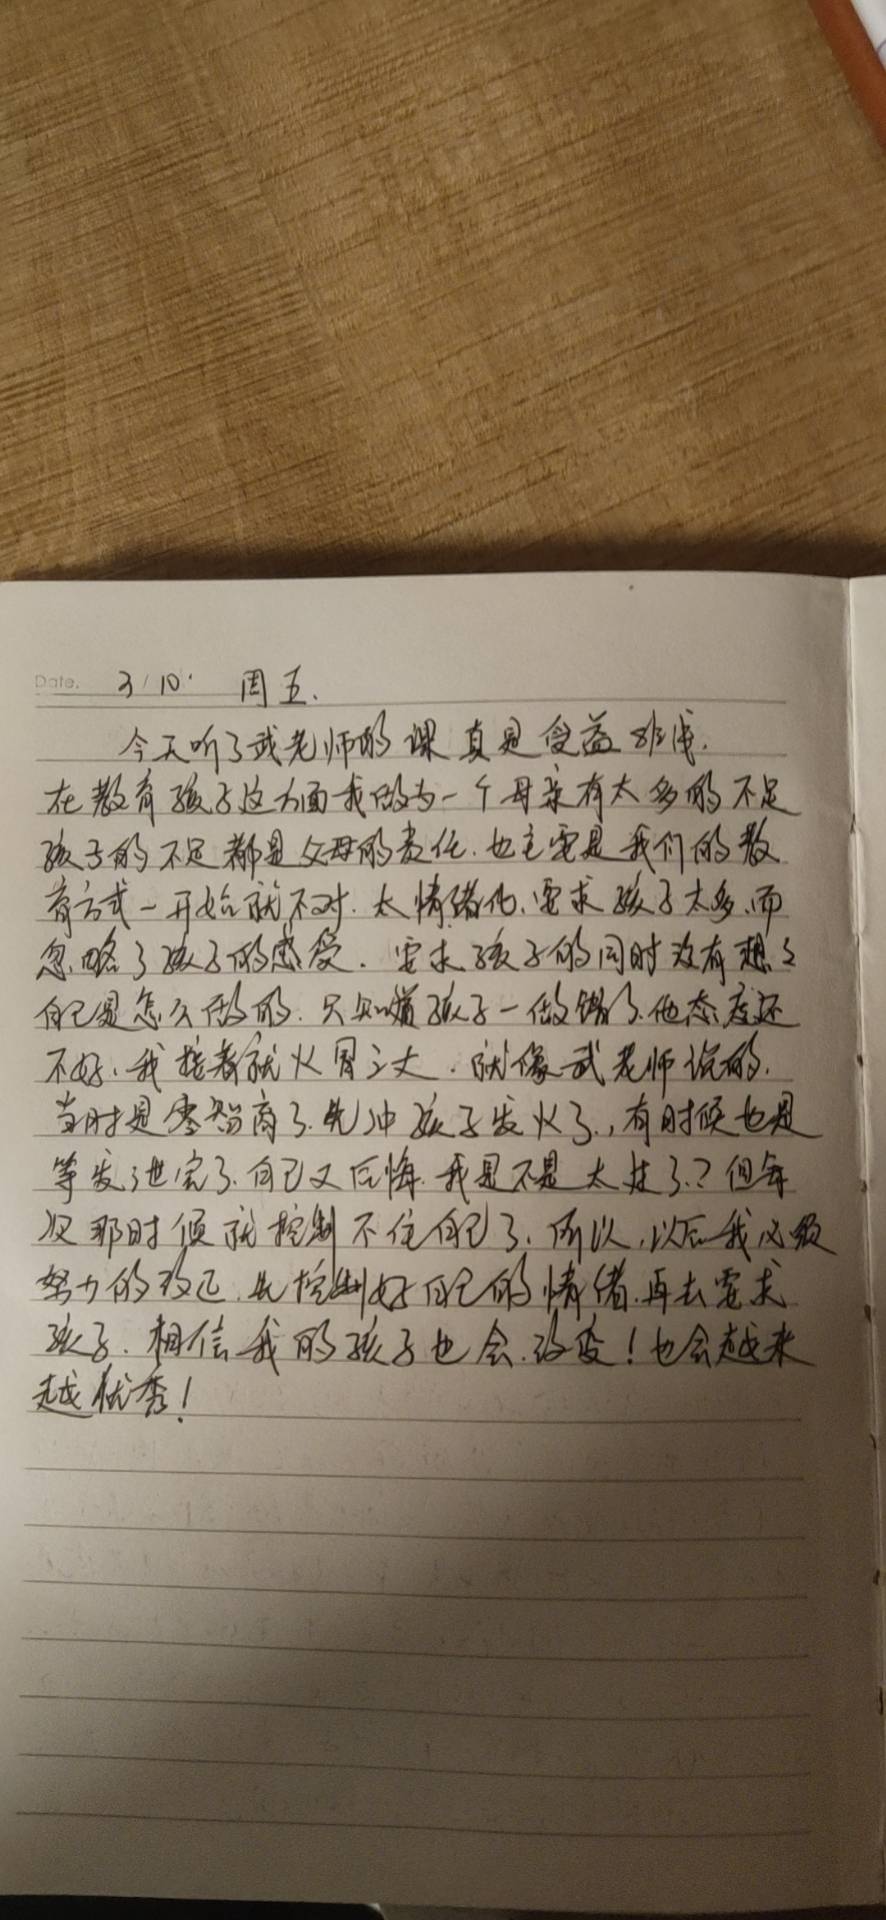 Date. 3/10. 周五.
今天听了武老师的课真是受益非浅.
在教育孩子这方面我做为一个母亲有太多的不足
孩子的不足都是父母的责任.也主要是我们的教
育方式一开始就不对.太情绪化、要求孩子太多、而
忽略了孩子的感受.要求孩子的同时没有想想
自己是怎么做的.只知道孩子一做错了.他态度还
不好、我接着就火冒三丈.就像武老师说的.
当时是零智商了.先冲孩子发火了.,有时候也是
等发泄完了.自己又后悔.我是不是太过了.?但每
次那时候就控制不住自己了.所以,以后我必须
努力的改正.先控制好自己的情绪.再去要求
孩子.相信我的孩子也会.改变!也会越来
越优秀!